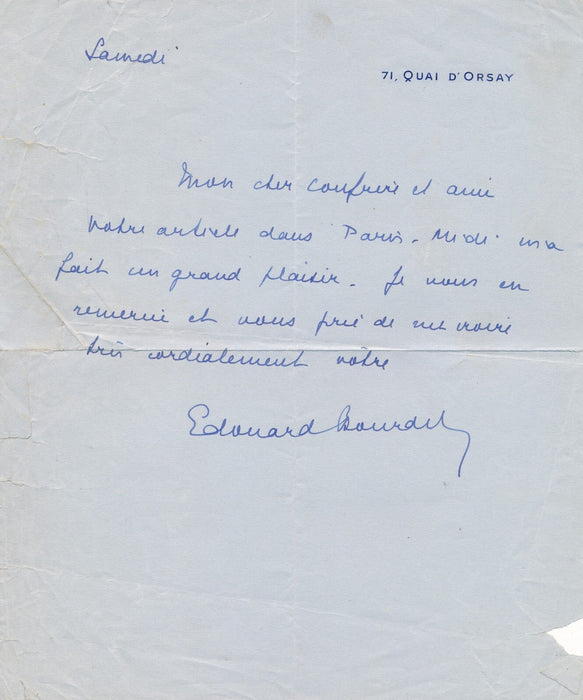 Samedi
71, QUAI D'ORSAY
Mon cher confrère et ami
Votre article dans Paris-Midi m'a
fait un grand plaisir. Je vous en
remercie et vous prie de me croire
très cordialement vôtre
Edouard Bourdet